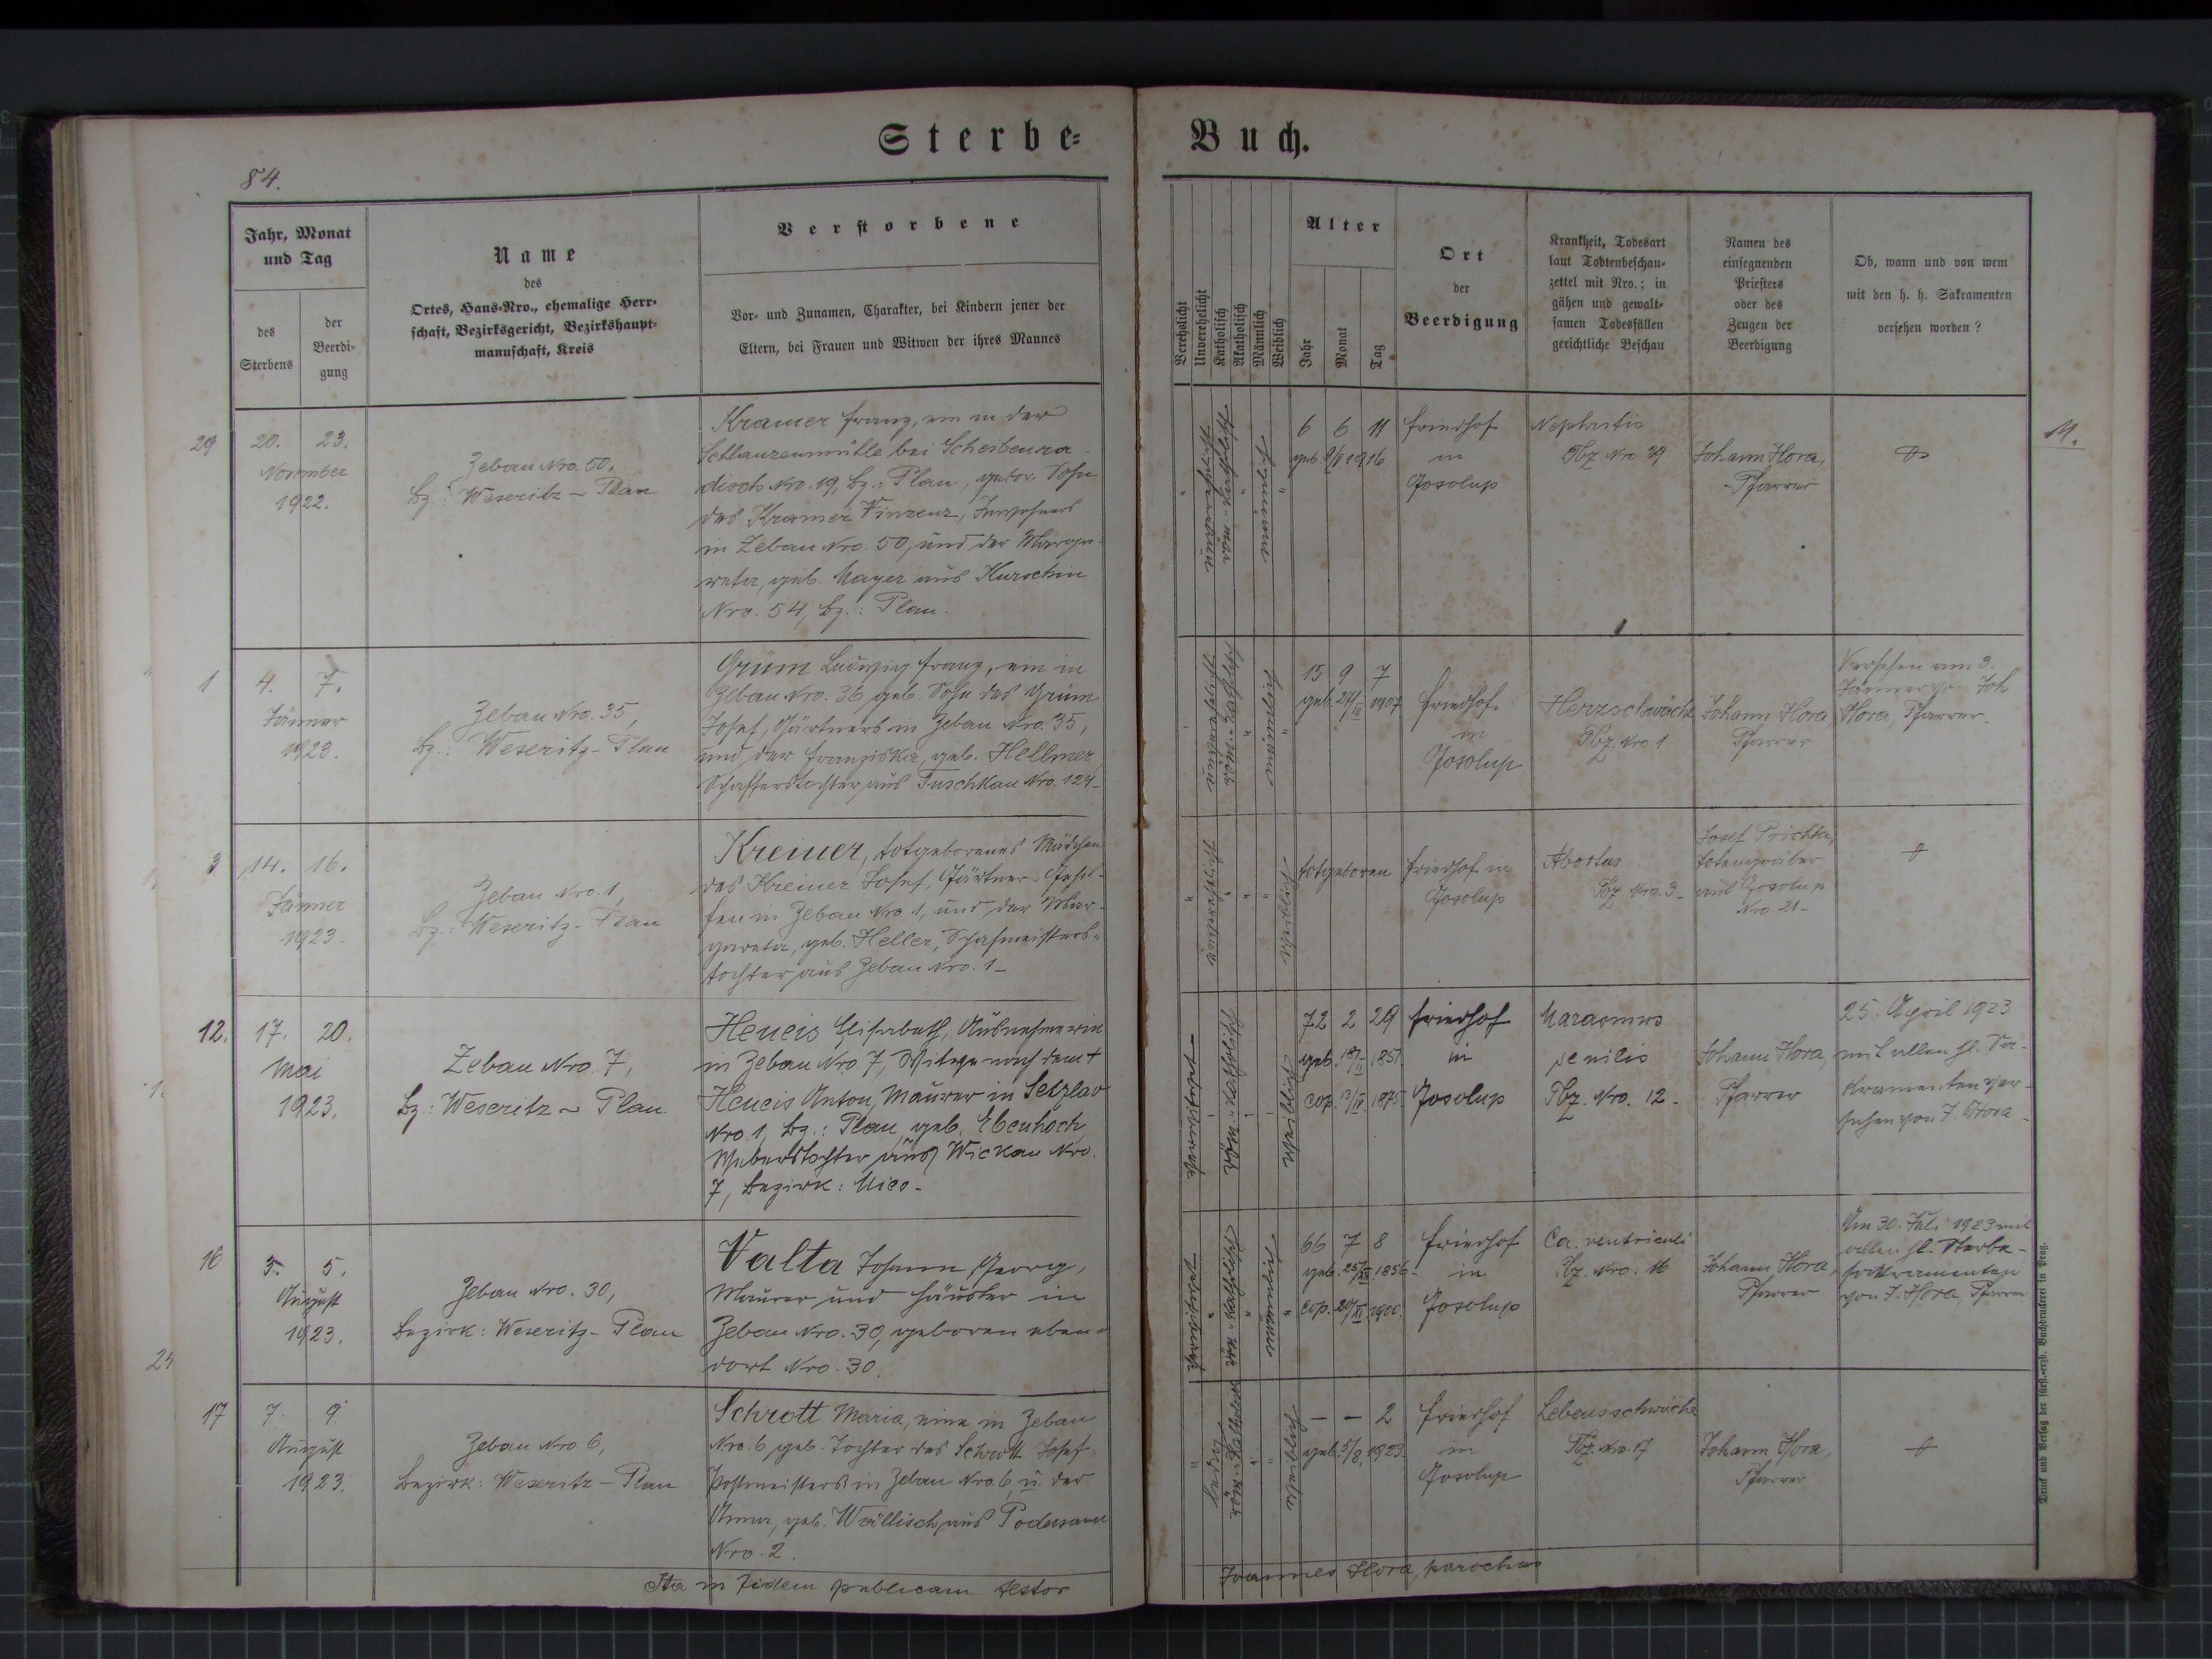 Sterbe=
Buch.
84.
Jahr, Monat
und Tag
des
Sterbens
der
Beerdi=
gung
Name
des
Ortes, Haus=Nro., ehemalige Herr=
schaft, Bezirksgericht, Bezirkshaupt=
mannschaft, Kreis
Verstorbene
Vor= und Zunamen, Charakter, bei Kindern jener der
Eltern, bei Frauen und Witwen der ihres Mannes
Verehelicht
Unverehelicht
Katholisch
Akatholisch
Männlich
Weiblich
Alter
Jahr
Monat
Tag
Ort
der
Beerdigung
Krankheit, Todesart
laut Todtenbeschau=
zettel mit Nro.; in
gähen und gewalt=
samen Todesfällen
gerichtliche Beschau
Namen des
einsegnenden
Priesters
oder des
Zeugen der
Beerdigung
Ob, wann und von wem
mit den h. h. Sakramenten
versehen worden?
29
20. 23.
November
1922.
Zebau Nro. 50.
Bz.: Weseritz - Plan
Kramer Franz, ein in der
Schlanzenmühle bei Scheibenra-
disch Nro. 19, Bz.: Plan, gebor. Sohn
des Kramer Vinzenz, Inwohners
in Zebau Nro. 50, und der Marga-
reta, geb. Mayer aus Kurschin
Nro. 54, Bz.: Plan.
unverehelicht
röm.-katholisch
männlich
6 6 11
geb. 9/V 1916
Friedhof
in
Gosolup
Nephritis
Tbz Nro 29
Johann Hora,
Pfarrer
M.
1
4. 7.
Jänner
1923.
Zebau Nro. 35,
Bz.: Weseritz - Plan
Grüm Ludwig Franz, ein in
Zebau Nro. 36 geb. Sohn des Grüm
Josef, Gärtners in Zebau Nro. 35,
und der Franziska, geb. Hellmer,
Schafferstochter aus Tuschkau Nro. 124-
unverehelicht
röm.-katholisch
männlich
15 9 7
geb. 24/III 1907
Friedhof
in
Gosolup
Herzschwäche
Tbz. Nro. 1
Johann Hora,
Pfarrer
Versehen am 3.
Jänner von Joh
Hora, Pfarrer.
3
14. 16.
Jänner
1923.
Zebau Nro. 1,
Bz.: Weseritz - Plan
Kreiner, totgeborenes Mädchen
des Kreiner Josef, Gärtner-Gehil-
fen in Zebau Nro 1, und der Mar-
gareta, geb. Heller, Schafmeisters-
tochter aus Zebau Nro. 1-
unverehelicht
weiblich
totgeboren
Friedhof in
Gosolup
Abortus
Tbz. Nro. 3-
Josef Prichta,
Totengräber
aus Gosolup
Nro. 21-
12.
17. 20.
Mai
1923.
Zebau Nro. 7,
Bz: Weseritz - Plan
Heneis Elisabeth, Ausnehmerin
in Zebau Nro 7, Witwe nach dem +
Heneis Anton, Maurer in Setzlav
Nro. 1, Bz.: Plan, geb. Ebenhoch,
Weberstochter aus Wickau Nro.
7, Bezirk: Mies-
verwitwet
röm.-katholisch
weiblich
72 2 29
geb. 18/II 1851
cop. 13/IV 1875
Friedhof
in
Gosolup
Marasmus
senilis
Tbz. Nro. 12.
Johann Hora,
Pfarrer
25. April 1923
mit allen hl. Sa-
kramenten ver-
sehen von J. Hora
16
3. 5.
August
1923.
Zebau Nro. 30,
Bezirk: Weseritz - Plan
Valta Johann Georg,
Maurer und Häusler in
Zebau Nro. 30, geboren eben-
dort Nro. 30.
verwitwet
röm.-katholisch
männlich
66 7 8
geb. 25/XII 1856
cop. 20/XI 1900
Friedhof
in
Gosolup
Ca. ventriculi
Tbz. Nro. 16
Johann Hora,
Pfarrer
Am 30. Juli 1923 mit
allen hl. Sterbe-
sakramenten
von J. Hora, Pfarrer
24
17
7. 9.
August
1923.
Zebau Nro 6,
Bezirk: Weseritz - Plan
Schrott Maria, eine in Zebau
Nro. 6 geb. Tochter des Schrott Josef
Postmeisters in Zebau Nro. 6, u. der
Anna, geb. Wällisch aus
Nro. 2.
ledig
röm.-katholisch
weiblich
- - 2
geb. 5/8. 1923.
Friedhof
in
Gosolup
Lebensschwäche
Tbz. Nro. 17
Johann Hora,
Pfarrer
Ita in fidem publicam testor
Joannes Hora, parochus
Druck und Verlag der fürst.=erzb. Buchdruckerei in Prag.